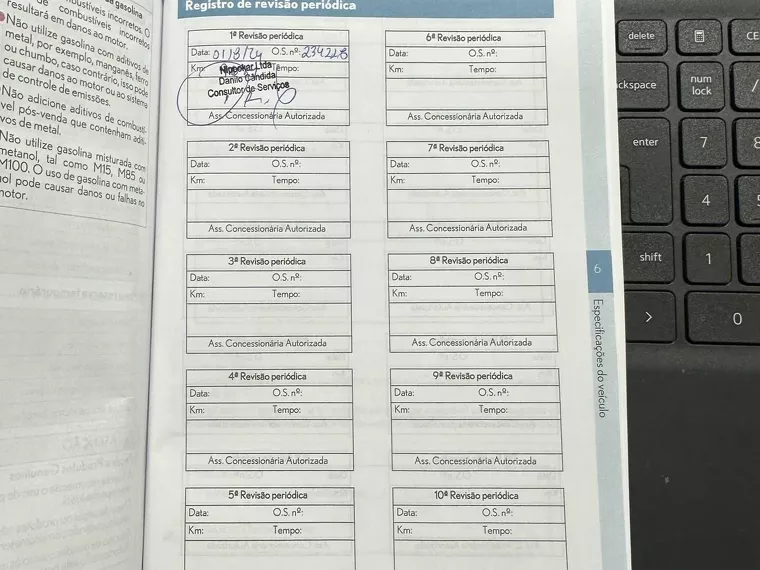 de gasolina
combustíveis incorretos. O
de combustíveis incorretos
resultará em danos ao motor.
Não utilize gasolina com aditivos de
metal, por exemplo, manganês, ferro
ou chumbo, caso contrário, isso pode
causar danos ao motor ou ao sistema
de controle de emissões.
Não adicione aditivos de combustí-
vel pós-venda que contenham aditi-
vos de metal.
Não utilize gasolina misturada com
metanol, tal como M15, M85 ou
M100. O uso de gasolina com meta-
nol pode causar danos ou falhas no
motor.
Registro de revisão periódica
1ª Revisão periódica
Data: O.S. nº:
Km:
Danilo Candida
Consultor de Serviços
Ass. Concessionária Autorizada
2ª Revisão periódica
Data: O.S. nº:
Km: Tempo:
Ass. Concessionária Autorizada
3ª Revisão periódica
Data: O.S nº:
Km: Tempo:
Ass. Concessionária Autorizada
4ª Revisão periódica
Data: O.S. nº:
Km: Tempo:
Ass. Concessionária Autorizada
5ª Revisão periódica
Data: O.S. nº:
Km: Tempo:
6ª Revisão periódica
Data: O.S. nº:
Km: Tempo:
Ass. Concessionária Autorizada
7ª Revisão periódica
Data: O.S. nº:
Km: Tempo:
Ass. Concessionária Autorizada
8ª Revisão periódica
Data: O.S nº:
Km: Tempo:
Ass. Concessionária Autorizada
9ª Revisão periódica
Data: O.S. nº:
Km: Tempo:
Ass. Concessionária Autorizada
10ª Revisão periódica
Data: O.S. nº:
Km: Tempo:
6
Especificações do veículo
delete CE
ckspace num lock /
enter 7 8
4 5
shift 1
> 0